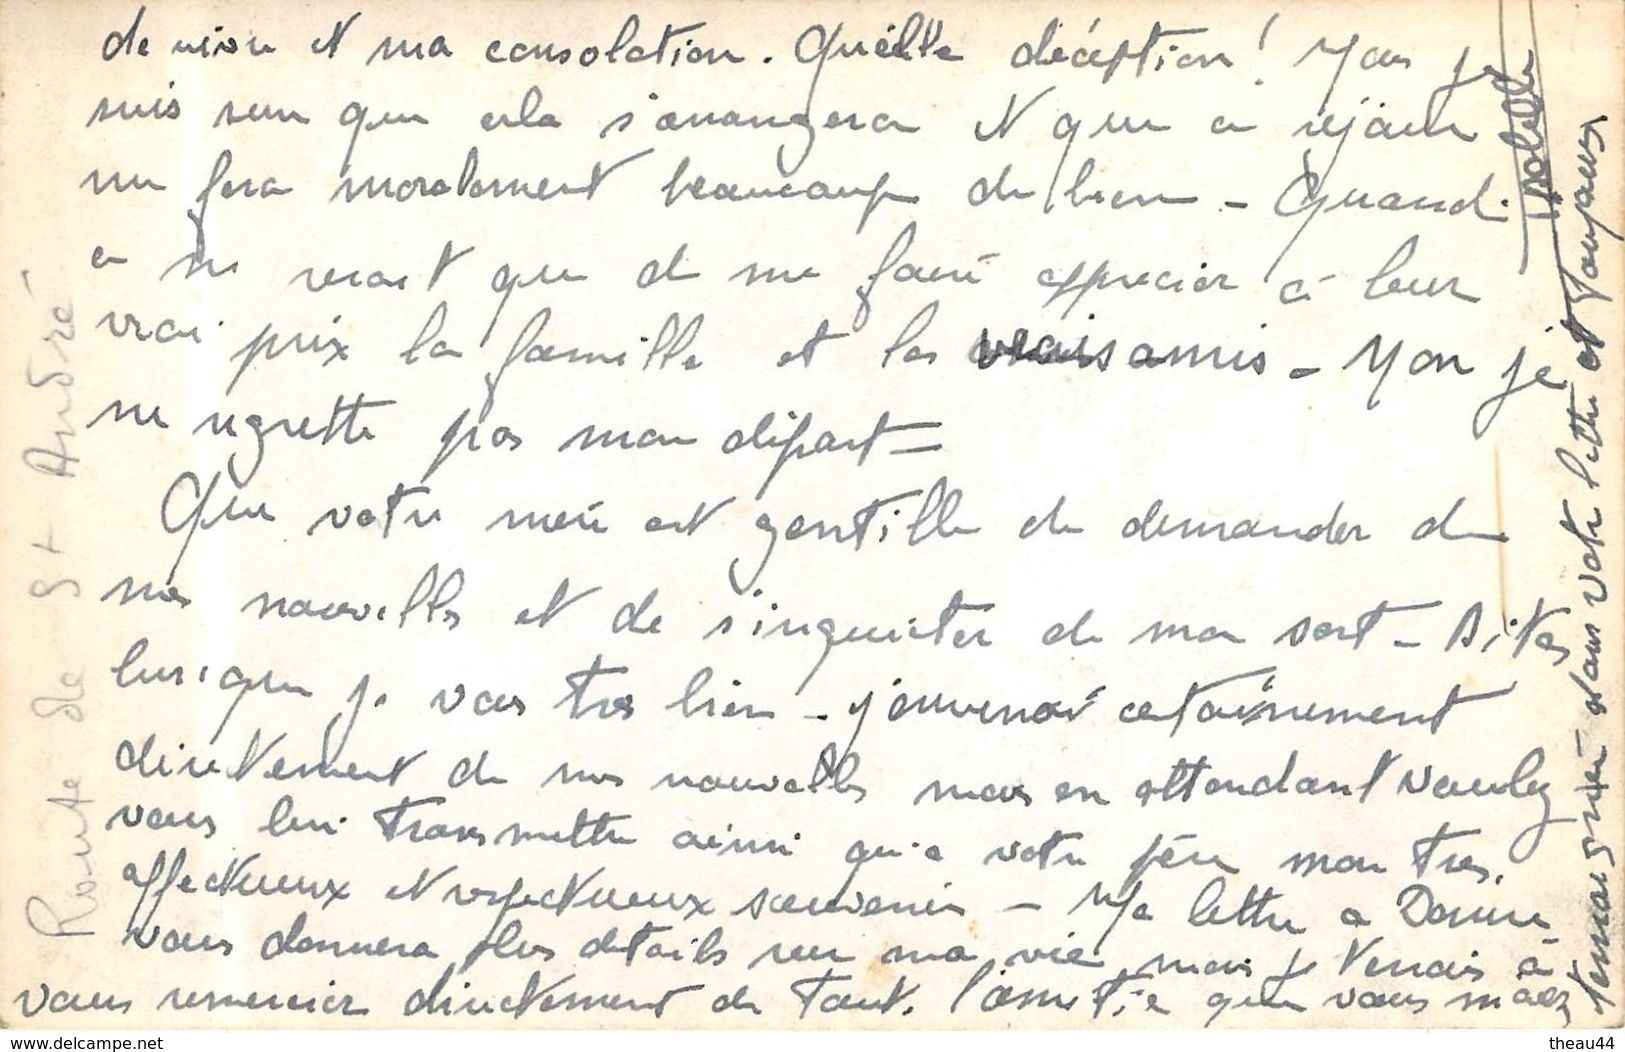 de vivre et ma consolation. Quelle déception! Mais je
suis sure que cela s'arrangera et que ce séjour
me fera moralement beaucoup de bien - Quand
ce ne serait que de me faire apprécier à leur
vrai prix la famille et les vrais amis - Non je
ne regrette pas mon départ =
Que votre mère est gentille de demander de
mes nouvelles et de s'inquiéter de mon sort - Dites
lui que je vais très bien - j'enverrai certainement
directement de mes nouvelles mais en attendant voulez
vous lui transmettre ainsi qu'a votre père mon tres
affectueux et respectueux souvenir - Ma lettre a Denise
vous donnera plus details sur ma vie mais je tenais à
vous remercier directement de tout. l'amitié que vous m'avez
temoignée dans votre lettre et toujours
Route de St André
theau44
delcampe.net